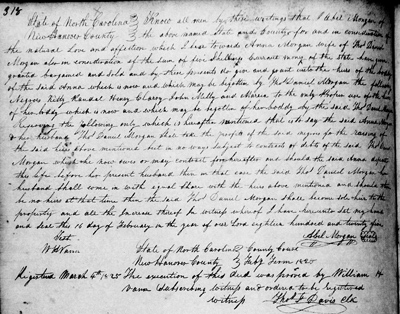 318
State of North Carolina } Know all men by these writings that I Abel Morgan of
New Hanover County } the above named State and County for and in consideration of
the natural Love and affection which I bear towards Anna Morgan wife of Thos Daniel
Morgan also in consideration of the sum of five Shillings current money of the State have given
granted bargained and sold and by these presents do give and grant unto the heirs of the body
of the said Anna which is now and which may be begotten by Thos Daniel Morgan the following
Negroes Kitty Hannah Henry Cherry John Milly and Maria to the only proper use of the heirs
of her body which is now and which may be begotten of her body by the said Thos Daniel Morgan
reserving the following only which is hereafter mentioned that is to say the said Anna Morgan
& her husband Thos Daniel Morgan shall have the profits of the said negroes for the raising of
the said heirs above mentioned but in no ways subject to contract or debts of the said Thos Daniel
Morgan which he now owes or may contract for hereafter and should the said Anna depart
this life before her present husband then in that case the said Thos Daniel Morgan her
husband shall come in with equal share with the heirs above mentioned and should there
be no heirs at that time then the said Thos Daniel Morgan shall become sole heir to the
property and all the increase thereof In witness whereof I have hereunto set my hand
and seal this 16 day of February in the year of our Lord eighteen hundred and twenty five
Test Abel Morgan Seal
W H Vann State of North Carolina } County Court
New Hanover County } Feby Term 1825
Registered March 4th 1825 The execution of this deed was proved by William H
Vann Subscribing witness and ordered to be registered
witness Thos F Davis Clk